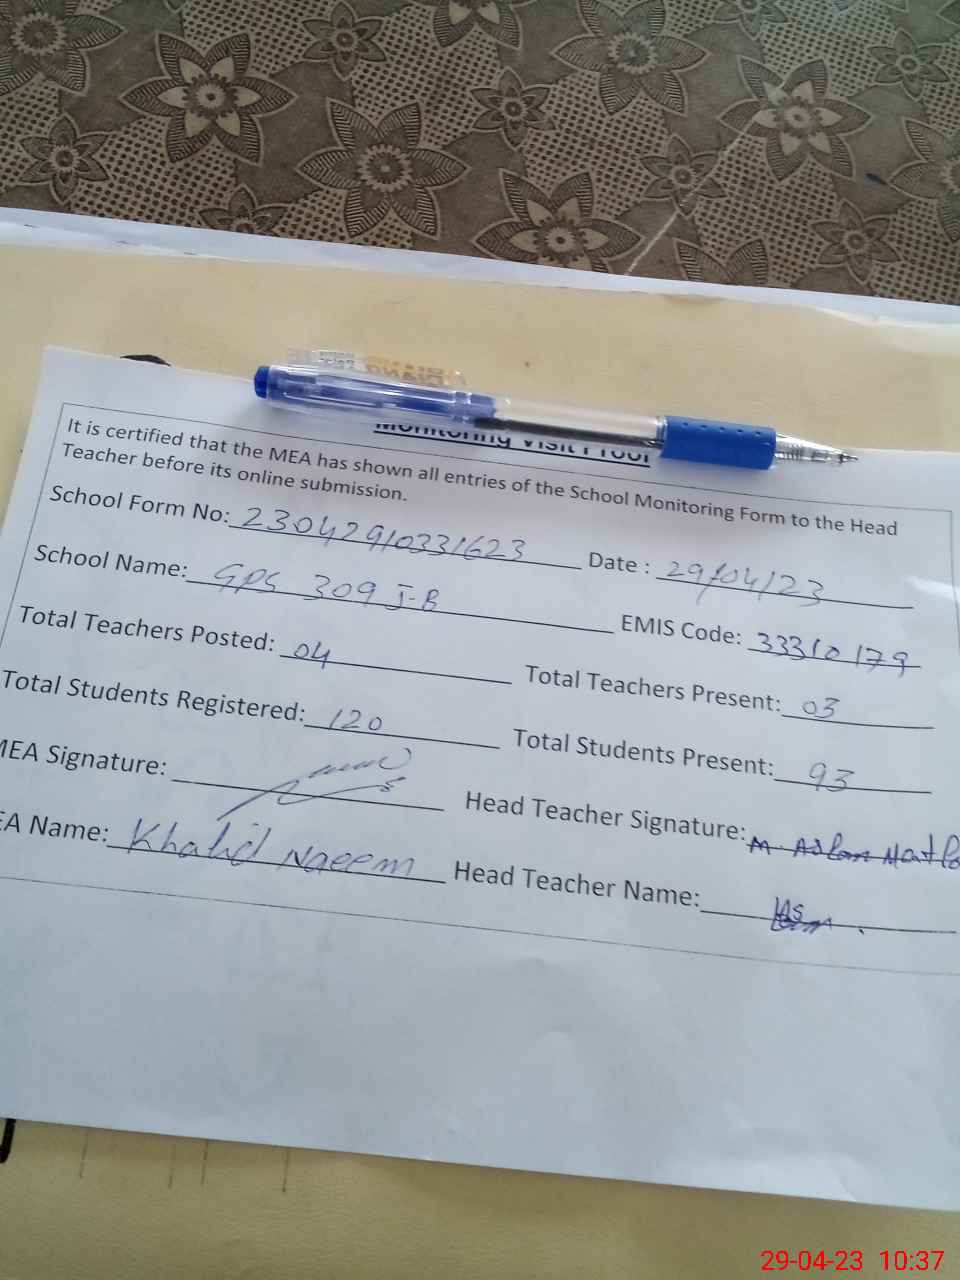 Monitoring Visit Proof
It is certified that the MEA has shown all entries of the School Monitoring Form to the Head
Teacher before its online submission.
School Form No: 23042910331623 Date : 29/04/23
School Name: GPS 309 J-B EMIS Code: 33310179
Total Teachers Posted: 04 Total Teachers Present: 03
Total Students Registered: 120 Total Students Present: 93
MEA Signature: Head Teacher Signature: M. Aslam
EA Name: Khalid Naeem Head Teacher Name:
29-04-23 10:37